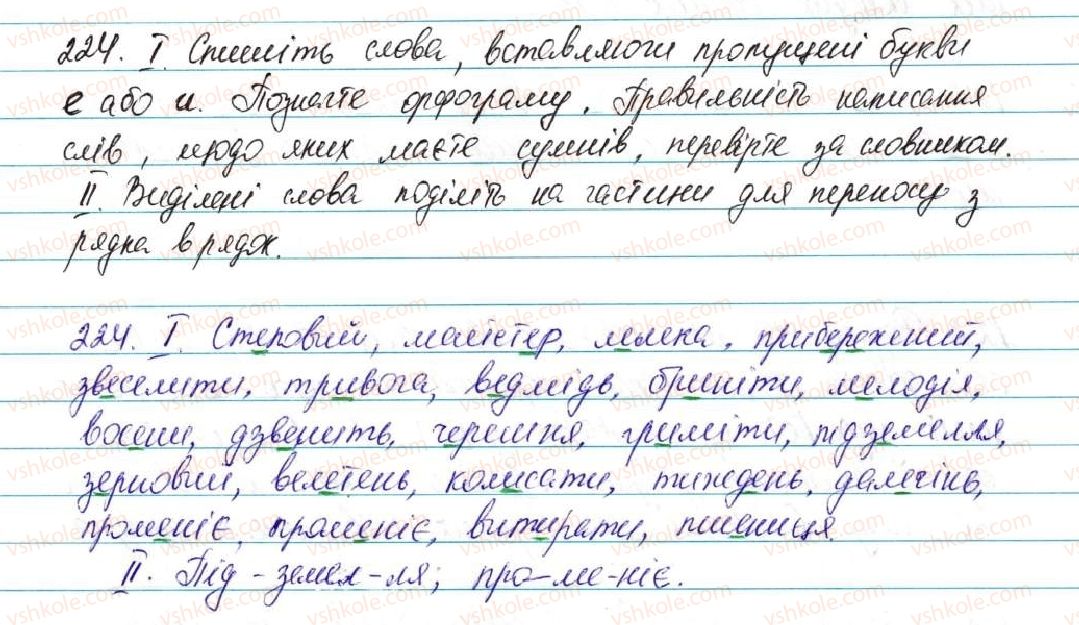 224. І. Спишіть слова, вставляючи пропущені букви
е або и. Позначте орфограму. Правильність написання
слів, щодо яких маєте сумнів, перевірте за словником.
ІІ. Виділені слова поділіть на частини для переносу з
рядка в рядок.
224. І. Степовий, магістер, миска, прибережний,
звеселити, тривога, ведмідь, бриніти, мелодія,
восени, дзвенить, черешня, гриміти, підземелля,
зерновий, велетень, колисати, тиждень, далечінь,
променіє, променіє, витирати, пшениця.
ІІ. Під-земел-ля; про-ме-ніє.